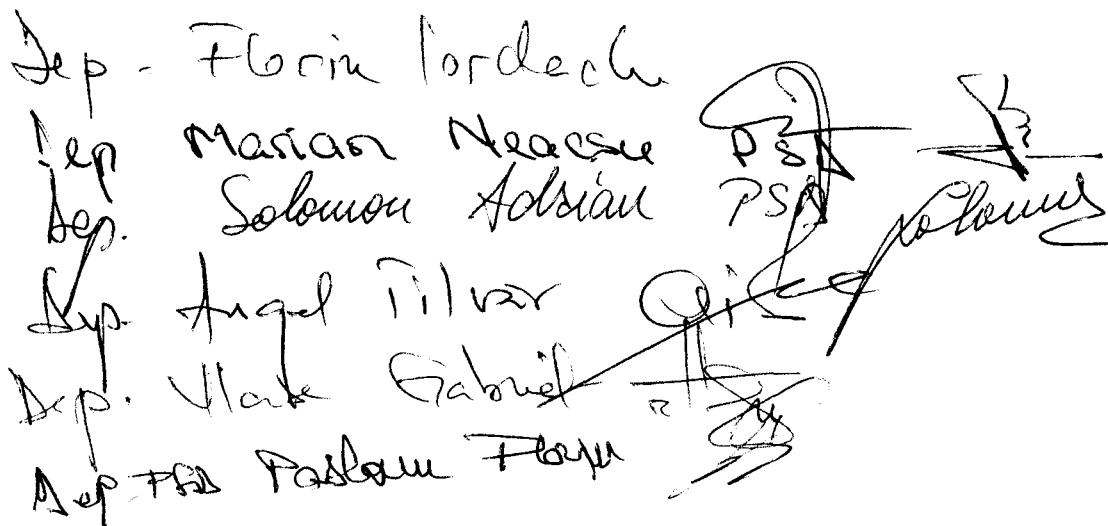 Dep - Florin Iordache
Dep Marian Neacsu PSD
Dep. Solomon Adrian PSD Solomon
Dep. Angel Tilvar
Dep. Vlase Gabriel
Dep PSD Florin